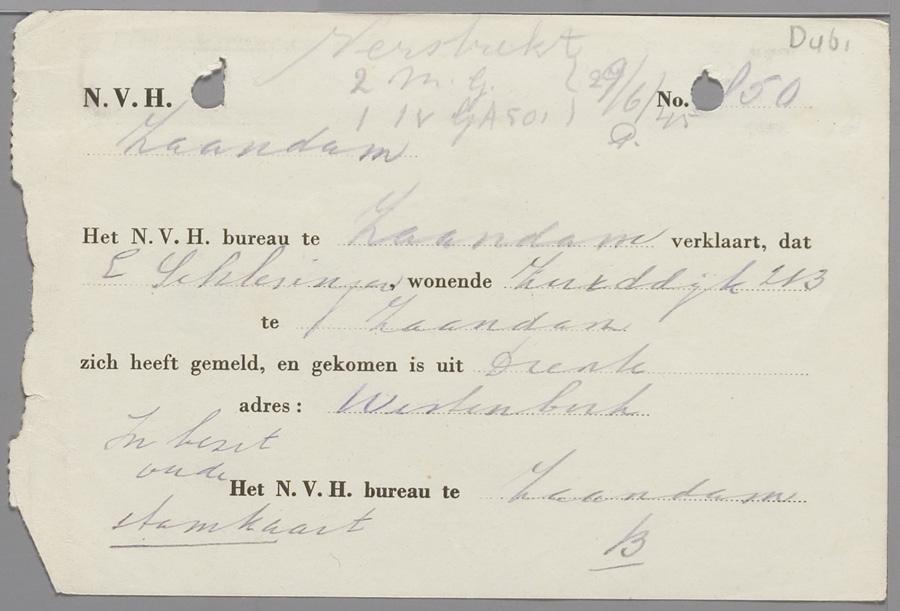 Verstrekt Dub.
N. V. H. 2 M. G. 29/6/45 No. 850
Zaandam
Het N. V. H. bureau te Zaandam verklaart, dat
E Schlesinger, wonende Zuiddijk 213
te Zaandam
zich heeft gemeld, en gekomen is uit Drente
adres: Westenbork
In bezit
oude
Het N. V. H. bureau te Zaandam
stamkaart B